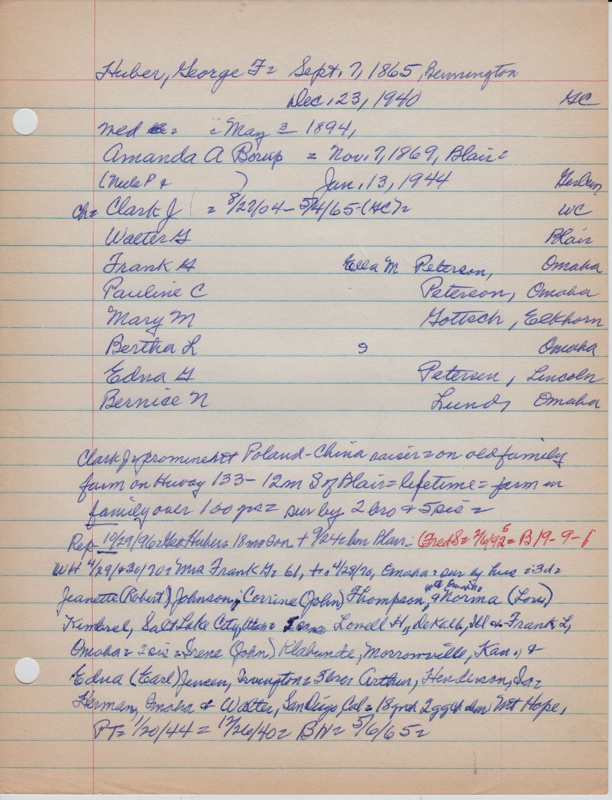 Huber, George F = Sept. 7, 1865, Bennington
Dec. 23, 1940 GC
med = May 1894,
Amanda A Borup = Nov. 7, 1869, Blair =
(Neils P & ) Jan. 13, 1944
ch = Clark J = 8/27/04 - 5/4/65 (GC) = WC
Walter G Blair
Frank G Ella M Peterson, Omaha
Pauline C Peterson, Omaha
Mary M Gottsch, Elkhorn
Bertha L Omaha
Edna G Petersen, Lincoln
Bernice N Lund, Omaha
Clark J = prominent Poland-China raiser = on old family
farm on Huway 133 - 12m S of Blair = lifetime = farm in
family over 100 yrs = sur by 2 bro & 5 sis =
Rep 10/29/96 = Geo Huber = 18 mo son + 9/24 Blair - (Fred S = B 19-9-1
WH 4/29/ 30/70 = Mrs Frank G = 61, + = 4/28/70, Omaha = sur by hus = 3 d =
Jeanette (Robert) Johnson, Corrine (John) Thompson, & Norma (Love)
Kimbrel, Salt Lake City, Lonell H, DeKalb, Ill & Frank L,
Omaha = 2 sis = Irene (John) Klabunde, Morrowville, Kan., &
Edna (Earl) Jensen, Irvington = 3 bro = Arthur, Henderson, Ia =
Herman, Omaha & Walter, San Diego, Cal = 18 grch 2 ggch Mt Hope,
PT = 1/20/44 = 12/26/40 = BN = 5/6/65 =